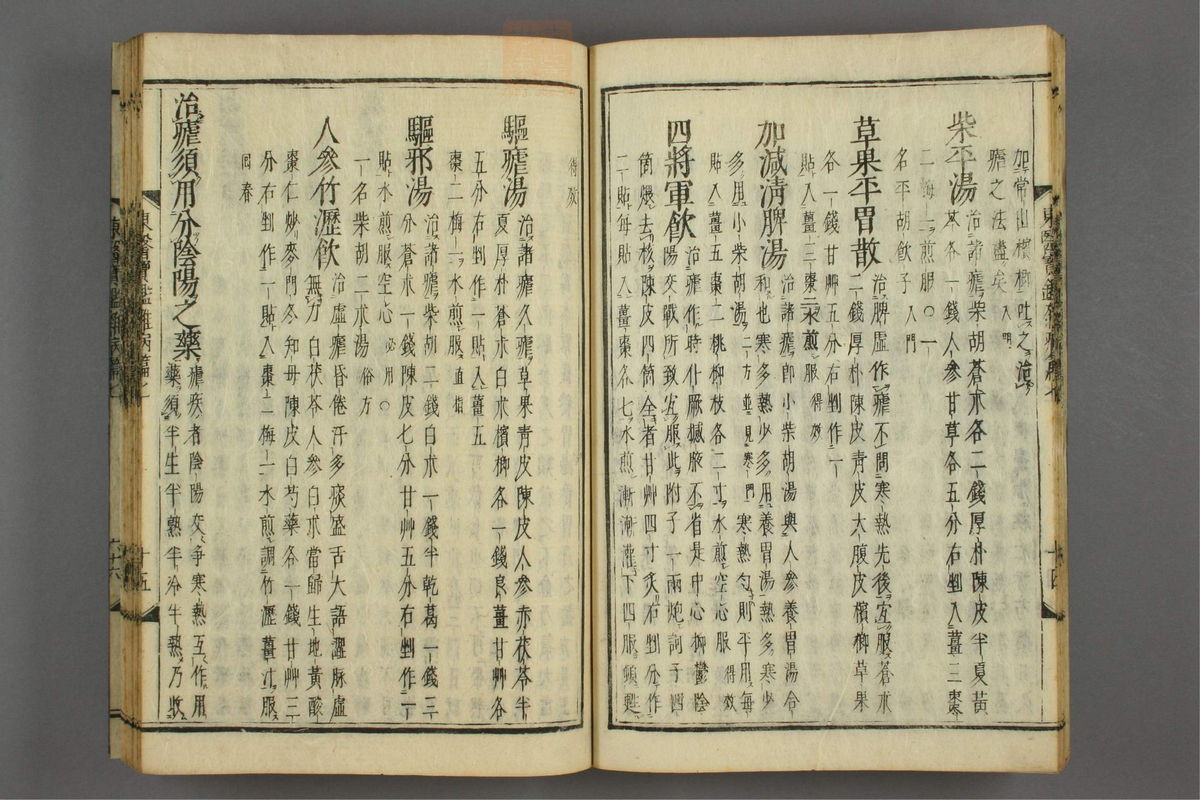 加常山檳榔吐之治
瘧之法盡矣入門
柴平湯治諸瘧柴胡蒼朮各二錢厚朴陳皮半夏黃
芩各一錢人參甘草各五分右剉入薑三棗
二梅一煎服○一
名平胡飮子入門
草果平胃散治脾虛作瘧不問寒熱先後宜服蒼朮
二錢厚朴陳皮靑皮大腹皮檳榔草果
各一錢甘艸五分右剉作一
貼入薑三棗二水煎服得效
加減淸脾湯治諸瘧卽小柴胡湯與人參養胃湯合
和也寒多熱少多用養胃湯熱多寒少
多用小柴胡湯二方並見寒門寒熱勻則平用每
貼入薑五棗二桃柳枝各二寸水煎空心服得效
四將軍飮治瘧作時仆厥撼腋不省是中心抑鬱陰
陽交戰所致宜服此附子一兩炮訶子四
箇煨去核陳皮四箇全者甘艸四寸炙右剉分作
二貼每貼入薑棗各七水煎漸漸灌下四服頓甦
得效
驅瘧湯治諸瘧久瘧草果靑皮陳皮人參赤茯苓半
夏厚朴蒼朮白朮檳榔各一錢良薑甘艸各
五分右剉作二貼入薑五
棗二梅一水煎服直指
驅邪湯治諸瘧柴胡二錢白朮一錢半乾葛一錢三
分蒼朮一錢陳皮七分甘艸五分右剉作二
貼水煎服空心必用○
一名柴胡二朮湯俗方
人參竹瀝飮治虛瘧昏倦汗多痰盛舌大語澁脉虛
無力白茯苓人參白朮當歸生地黃酸
棗仁炒麥門冬知母陳皮白芍藥各一錢甘艸三
分右剉作一貼入棗二梅一水煎調竹瀝薑汁服
回春
治瘧須用分陰陽之藥瘧疾者陰陽交爭寒熱互作用
藥須半生半熟半冷半熱乃收